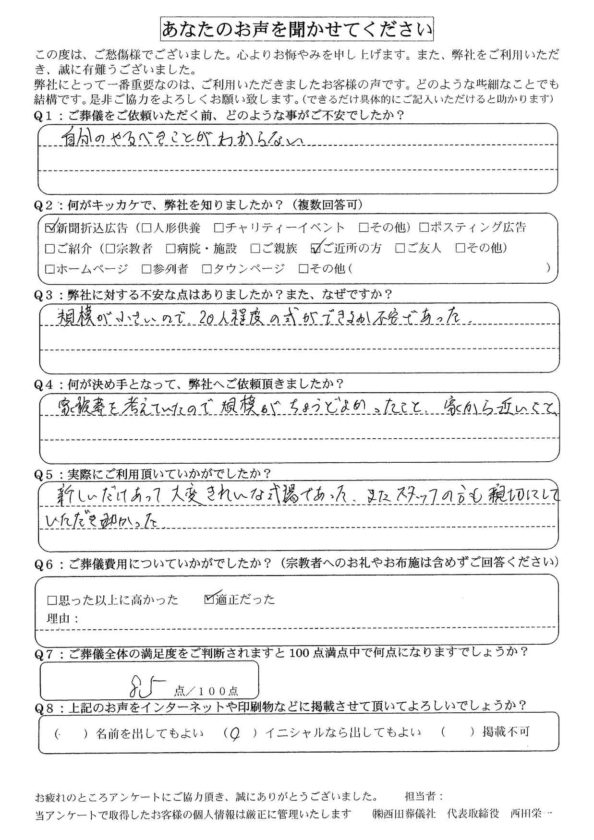 あなたのお声を聞かせてください
この度は、ご愁傷様でございました。心よりお悔やみを申し上げます。また、弊社をご利用いただ
き、誠に有難うございました。
弊社にとって一番重要なのは、ご利用いただきましたお客様の声です。どのような些細なことでも
結構です。是非ご協力をよろしくお願い致します。(できるだけ具体的にご記入いただけると助かります)
Q1:ご葬儀をご依頼いただく前、どのような事がご不安でしたか?
自分のやるべきことがわからない
Q2:何がキッカケで、弊社を知りましたか?(複数回答可)
☑新聞折込広告(□人形供養 □チャリティーイベント □その他)□ポスティング広告
□ご紹介(□宗教者 □病院・施設 □ご親族 ☑ご近所の方 □ご友人 □その他)
□ホームページ □参列者 □タウンページ □その他( )
Q3:弊社に対する不安な点はありましたか?また、なぜですか?
規模が小さいので、20人程度の式ができるか不安であった。
Q4:何が決め手となって、弊社へご依頼頂きましたか?
家族葬を考えていたので規模がちょうどよかったこと、家から近いこと
Q5:実際にご利用頂いていかがでしたか?
新しいだけあって大変きれいな式場であった。またスタッフの方も親切にして
いただき助かった
Q6:ご葬儀費用についていかがでしたか?(宗教者へのお礼やお布施は含めずご回答ください)
□思った以上に高かった ☑適正だった
理由:
Q7:ご葬儀全体の満足度をご判断されますと100点満点中で何点になりますでしょうか?
85 点/100点
Q8:上記のお声をインターネットや印刷物などに掲載させて頂いてよろしいでしょうか?
( )名前を出してもよい (○)イニシャルなら出してもよい ( )掲載不可
お疲れのところアンケートにご協力頂き、誠にありがとうございました。 担当者:
当アンケートで取得したお客様の個人情報は厳正に管理いたします ㈱西田葬儀社 代表取締役 西田栄一